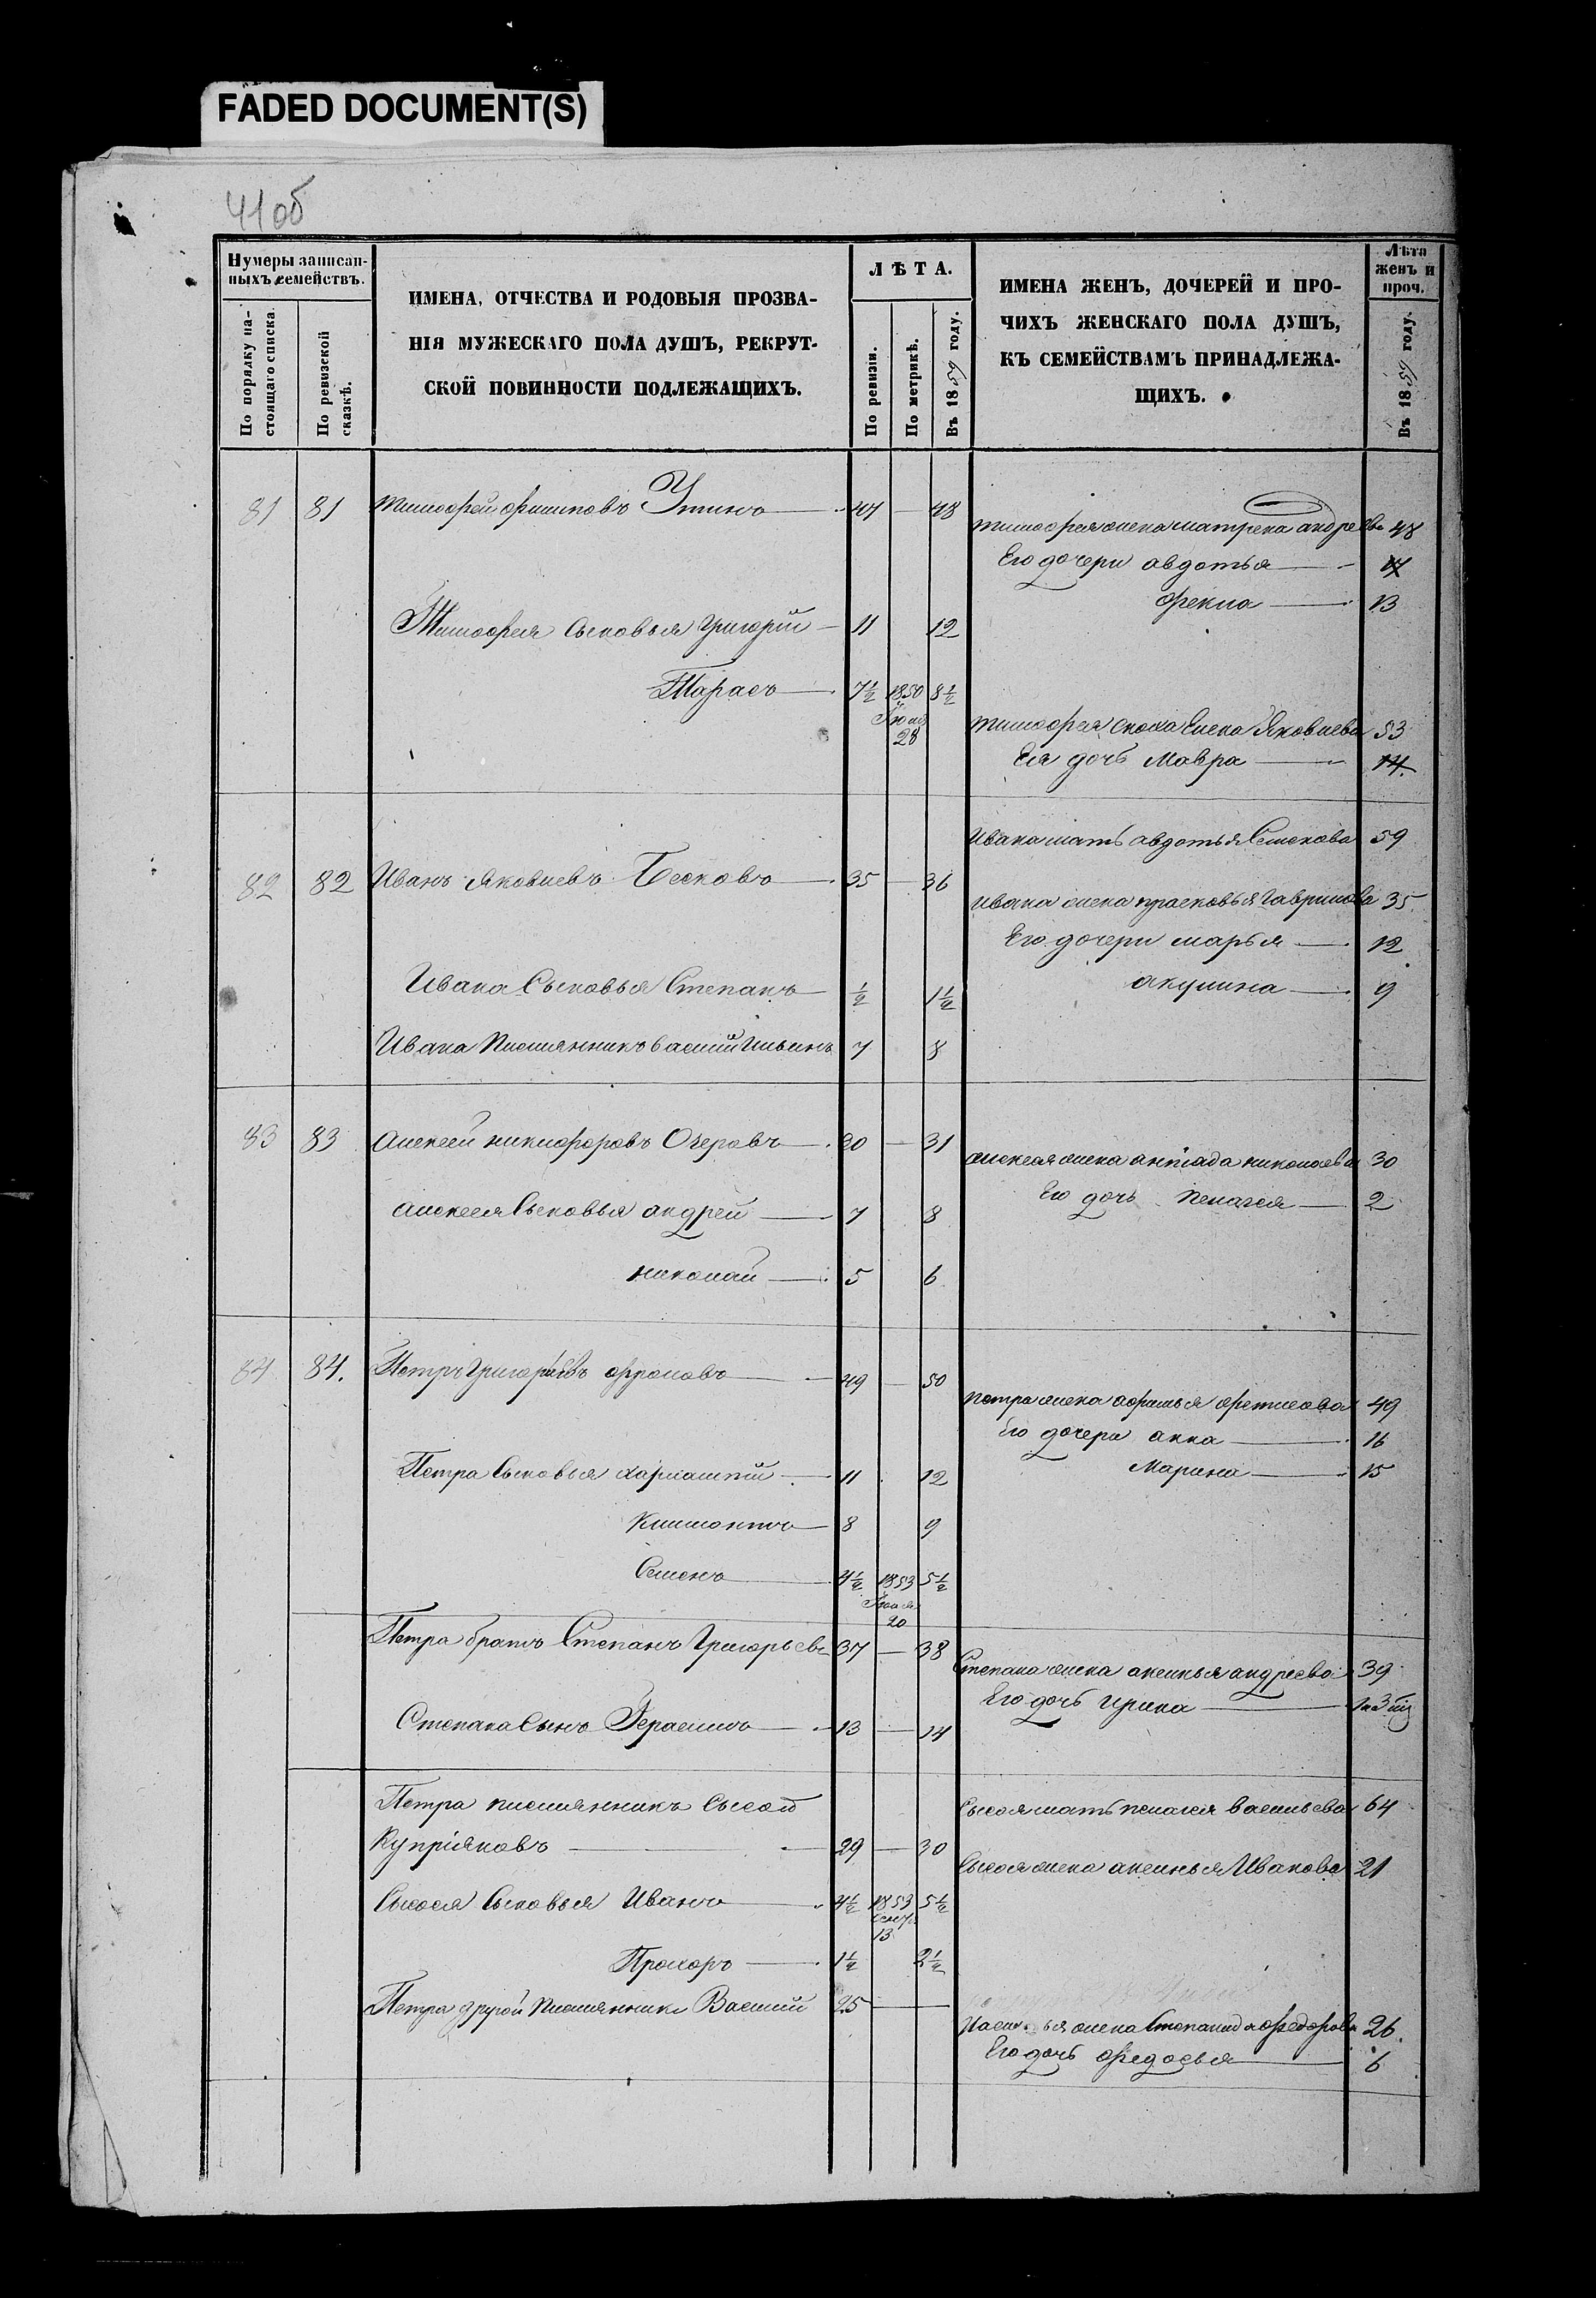 FADED DOCUMENT(S)
41 об
Нумеры записан-
ныхъ семействъ.
По порядку на-
стоящаго списка
По ревизской
сказкѣ.
ИМЕНА, ОТЧЕСТВА И РОДОВЫЯ ПРОЗВА-
НІЯ МУЖЕСКАГО ПОЛА ДУШЪ, РЕКРУТ-
СКОЙ ПОВИННОСТИ ПОДЛЕЖАЩИХЪ.
ЛѢТА.
По ревизіи.
По метрикѣ.
Въ 1859 году.
ИМЕНА ЖЕНЪ, ДОЧЕРЕЙ И ПРО-
ЧИХЪ ЖЕНСКАГО ПОЛА ДУШЪ,
КЪ СЕМЕЙСТВАМЪ ПРИНАДЛЕЖА-
ЩИХЪ.
Лѣта
женъ и
проч.
Въ 1859 году.
81 81 Тимофей Филиповъ Утинъ 47 — 48
Тимофея жена матрена андреева 48
Его дочери авдотья 17
фекла 13
Тимофея Сыновья Григорій 11 12
Тарасъ 7½ 1850 8½
28
Тимофея сноха Елена Яковлева 53
Ея дочь Мавра 14.
Ивана мать авдотья Семенова 59
82 82 Иванъ Яковлевъ 35 — 36
Ивана жена прасковья Гаврилова 35
Его дочери марья 12
акулина 9
Ивана Сыновья Степанъ ½ 1½
Ивана Племянникъ василій Ильинъ 7 8
83 83 Алексей никифоровъ Озеровъ 30 — 31
Алексея жена николаева 30
Его дочь пелагея 2
Алексея Сыновья андрей 7 8
николай 5 6
84 84. Петръ Григорьевъ фроловъ 49 — 50
Петра жена афимья 49
Его дочери анна 16
Марина 15
Петра Сыновья харлампій 11 12
Климонтъ 8 9
Семенъ 4½ 1853 5½
20
Петра братъ Степанъ Григорьевъ 37 — 38
Степана жена аксинья андреева 39
Его дочь Ирина
Степана Сынъ Герасимъ 13 — 14
Петра племянникъ Сысой
Купріяновъ 29 — 30
Сысоя мать пелагея васильева 64
Сысоя жена аксинья Иванова 21
Сысоя Сыновья Иванъ 4½ 1853 5½
13
Прохоръ 1½ 2½
Петра другой Племянникъ Василий 25 —
жена Степанида федорова 26.
Его дочь федосья 6